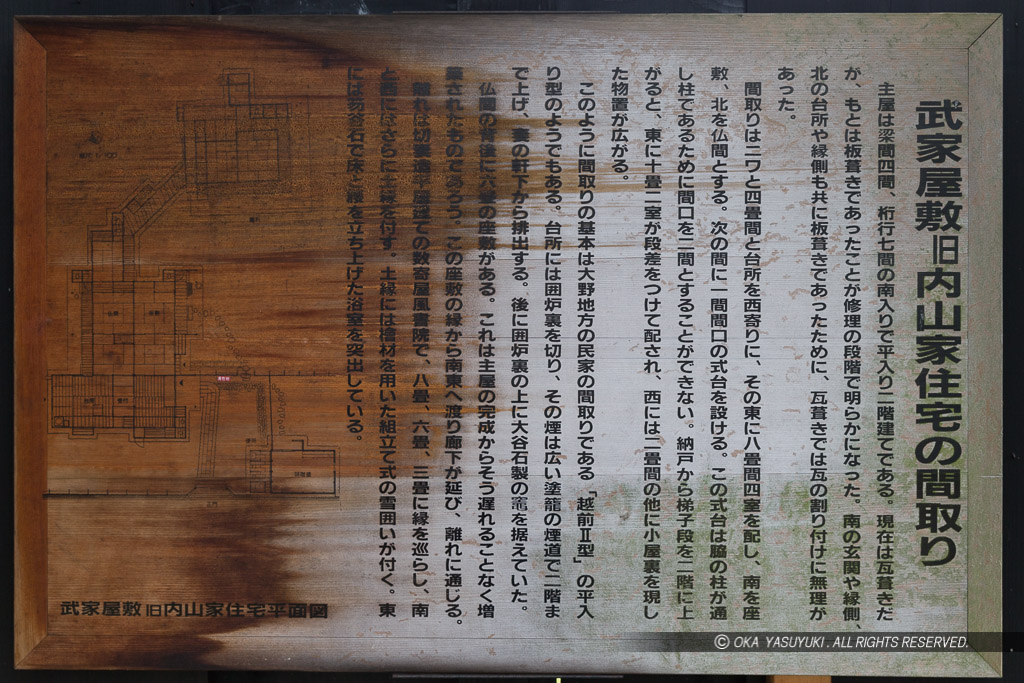 武家屋敷旧内山家住宅の間取り
主屋は梁間四間、桁行七間の南入りで平入り二階建てである。現在は瓦葺きだ
が、もとは板葺きであったことが修理の段階で明らかになった。南の玄関や縁側、
北の台所や縁側も共に板葺きであったために、瓦葺きでは瓦の割り付けに無理が
あった。
間取りはニワと四畳間と台所を西寄りに、その東に八畳間四室を配し、南を座
敷、北を仏間とする。次の間に一間間口の式台を設ける。この式台は脇の柱が通
し柱であるために間口を二間とすることができない。納戸から梯子段を二階に上
がると、東に十畳二室が段差をつけて配され、西には二畳間の他に小屋裏を現し
た物置が広がる。
このように間取りの基本は大野地方の民家の間取りである「越前Ⅱ型」の平入
り型のようでもある。台所には囲炉裏を切り、その煙は広い塗籠の煙道で二階ま
で上げ、妻の軒下から排出する。後に囲炉裏の上に大谷石製の竈を据えていた。
仏間の背後に六畳の座敷がある。これは主屋の完成からそう遅れることなく増
築されたものであろう。この座敷の縁から南東へ渡り廊下が延び、離れに通じる。
離れは切妻造平屋建ての数寄屋風書院で、八畳、六畳、三畳に縁を巡らし、南
と西にはさらに土縁を付す。土縁には檜材を用いた組立て式の雪囲いが付く。東
には笏谷石で床と腰を立ち上げた浴室を突出している。
武家屋敷旧内山家住宅平面図
© OKA YASUYUKI. ALL RIGHTS RESERVED.